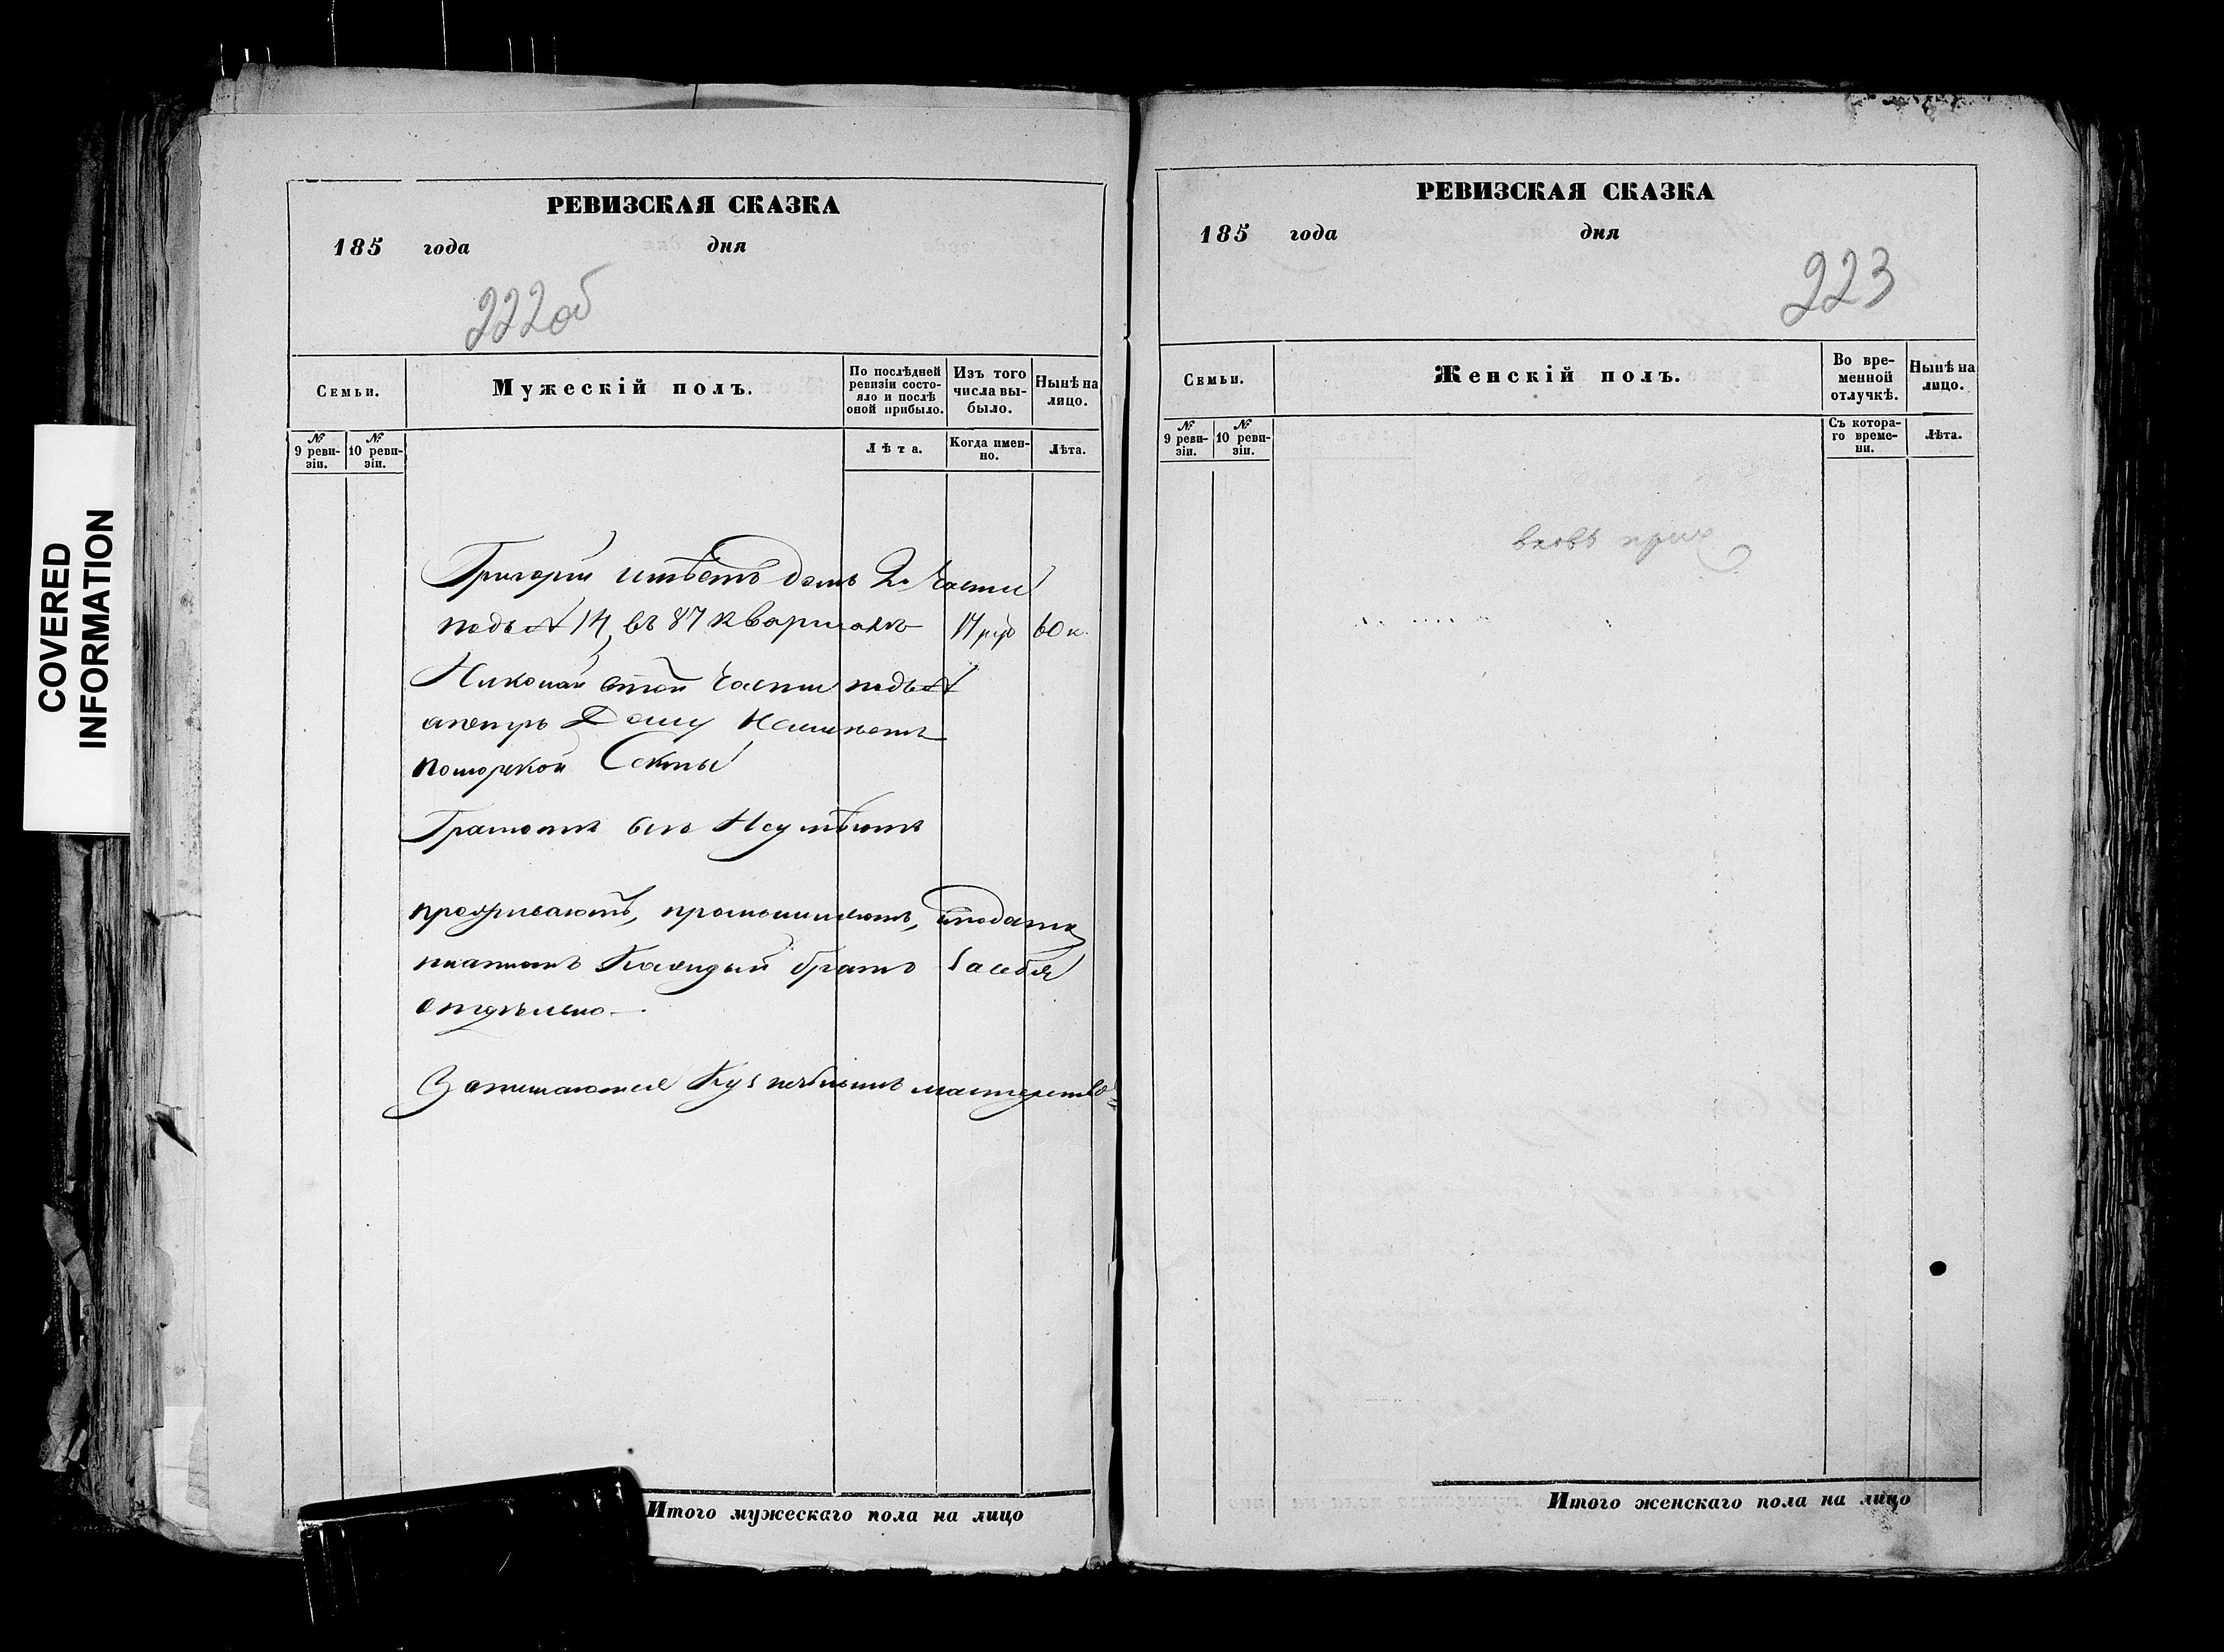 COVERED
INFORMATION
РЕВИЗСКАЯ СКАЗКА
185 года дня
222об
Семьи.
Мужескій полъ.
По послѣдней
ревизіи состо-
яло и послѣ
оной прибыло.
Изъ того
числа вы-
было.
Нынѣ на
лицо.
№
9 реви-
зіи.
№
10 реви-
зіи.
Лѣта.
Когда имен-
но.
Лѣта.
Григорій имѣетъ домъ 2й Части
подъ № 14, въ 87 кварталѣ 17 руб 60 к.
Николай этой Части подъ №
Дому Неимѣетъ
поморской Секты
Грамотѣ всѣ Неумѣютъ
проживаютъ, промышляютъ, и подати
платютъ Каждый братъ За себя
отдѣлено —
Занимаются Кузнечнымъ мастерство=
Итого мужескаго пола на лицо
РЕВИЗСКАЯ СКАЗКА
185 года дня
223
Семьи.
Женскій полъ.
Во вре-
менной
отлучкѣ.
Нынѣ на
лицо.
№
9 реви-
зіи.
№
10 реви-
зіи.
Съ котора-
го време-
ни.
Лѣта.
вновь прич
Итого женскаго пола на лицо